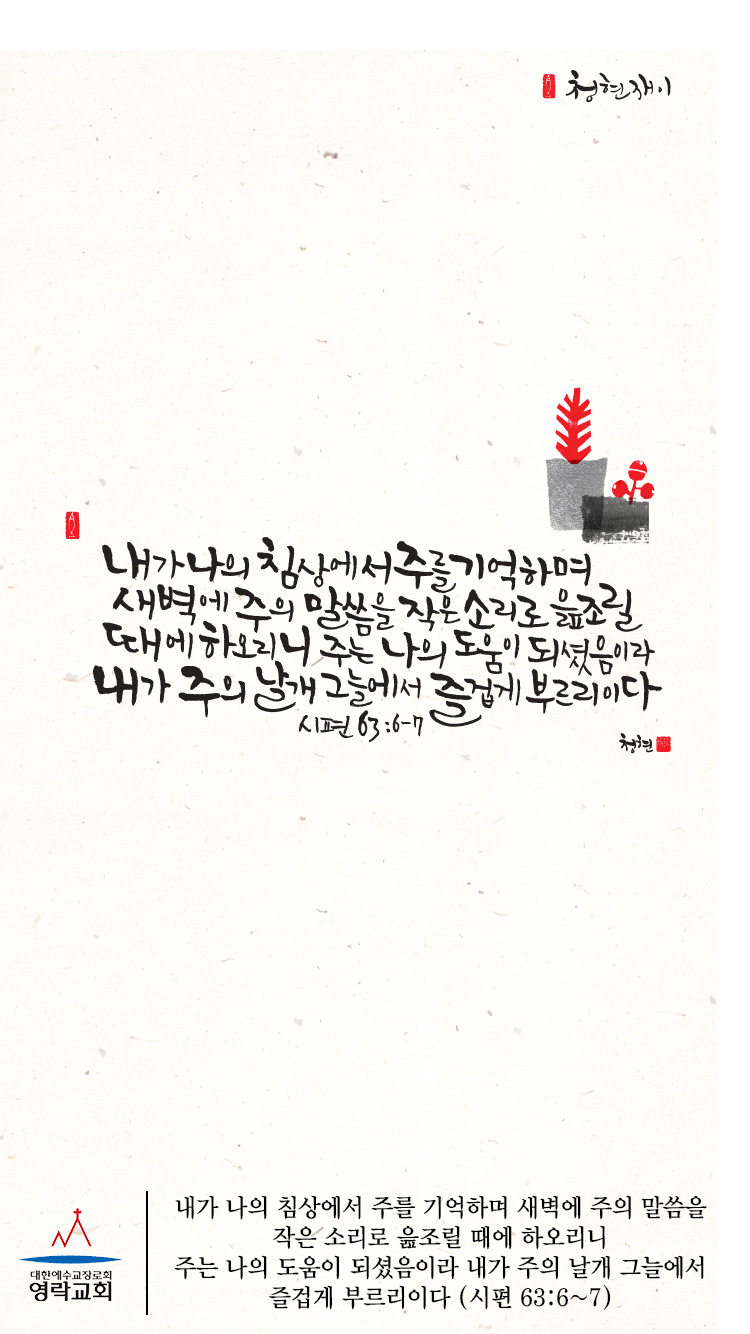 청현재이
내가 나의 침상에서 주를 기억하며
새벽에 주의 말씀을 작은 소리로 읊조릴
때에 하오리니 주는 나의 도움이 되셨음이라
내가 주의 날개 그늘에서 즐겁게 부르리이다
시편 63:6-7
청현
내가 나의 침상에서 주를 기억하며 새벽에 주의 말씀을
작은 소리로 읊조릴 때에 하오리니
주는 나의 도움이 되셨음이라 내가 주의 날개 그늘에서
즐겁게 부르리이다 (시편 63:6~7)
대한예수교장로회
영락교회